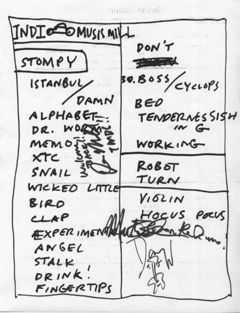 INDI MUSIC MILL
STOMPY
ISTANBUL
/ DAMN
ALPHABET
DR. WORM
MEMO
XTC
SNAIL
WICKED LITTLE
BIRD
CLAP
EXPERIMENT
ANGEL
STALK
DRINK!
FINGERTIPS
DON'T
BOSS / CYCLOPS
BED
TENDERNESSISH
IN G
WORKING
ROBOT
TURN
VIOLIN
HOCUS POCUS